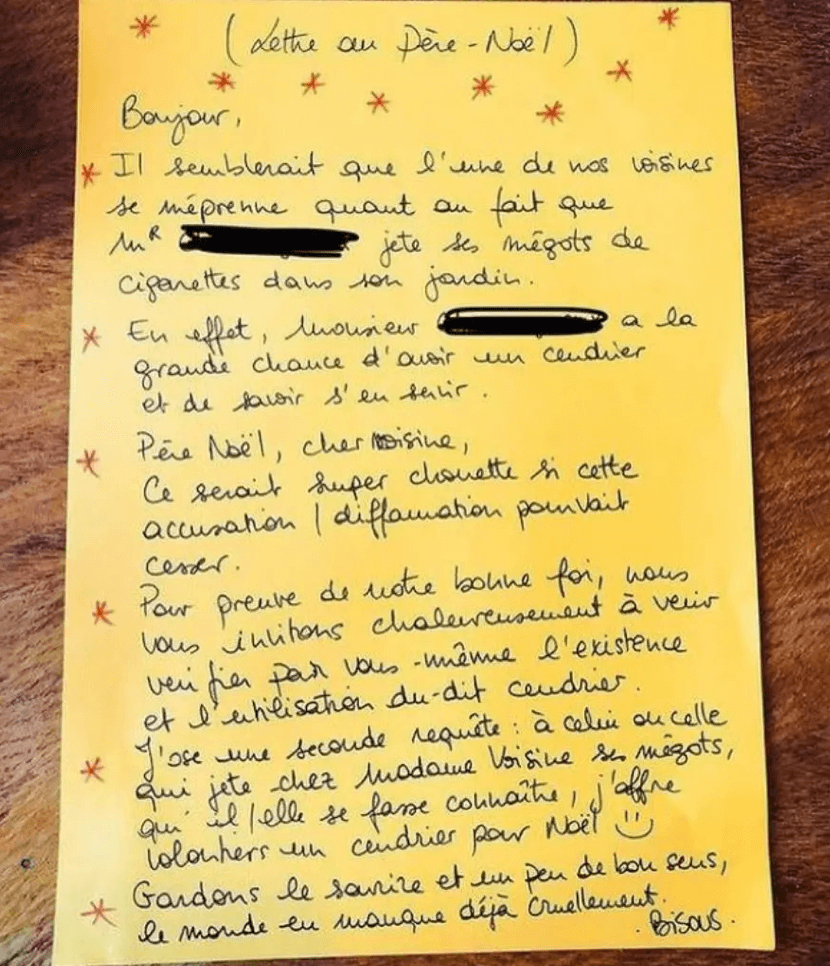 (Lettre au Père-Noël)
Bonjour,
Il semblerait que l'une de nos voisines
se méprenne quant au fait que
MR jete ses mégots de
cigarettes dans son jardin.
En effet, Monsieur a la
grande chance d'avoir un cendrier
et de savoir s'en servir.
Père Noël, cher voisine,
Ce serait super chouette si cette
accusation / diffamation pouvait
cesser.
Pour preuve de notre bonne foi, nous
vous invitons chaleureusement à venir
verifier par vous-même l'existence
et l'utilisation du-dit cendrier.
J'ose une seconde requête : à celui ou celle
qui jete chez Madame Voisine ses mégots,
qu'il/elle se fasse connaître, j'offre
volontiers un cendrier pour Noël
Gardons le sourire et un peu de bon sens,
le monde en manque déjà cruellement.
. Bisous.